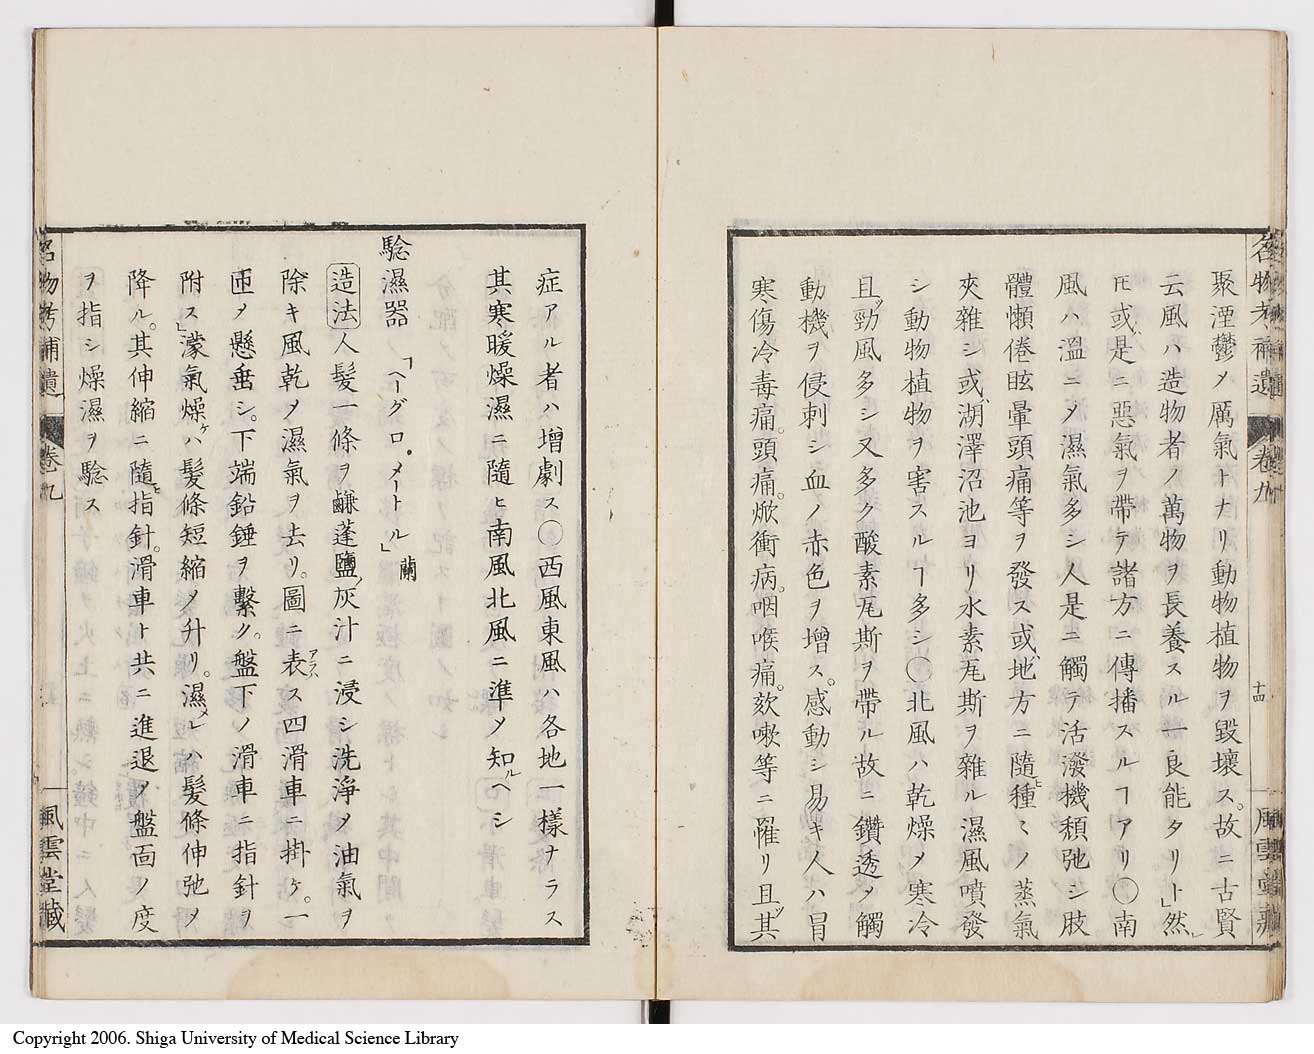 名物考補遺 卷九 十四 風雲堂藏
聚湮鬱ノ厲氣トナリ動物植物ヲ毀壞ス。故ニ古賢
云風ハ造物者ノ萬物ヲ長養スルノ一良能タリト」然レ
𪜈或ハ是ニ惡氣ヲ帶テ諸方ニ傳播スルヿアリ〇南
風ハ溫ニメ濕氣多シ人是ニ觸テ活潑機頹弛シ肢
體懶倦眩暈頭痛等ヲ發ス或ハ地方ニ隨ヒ種〻ノ蒸氣
夾雜シ或ハ湖澤沼池ヨリ水素瓦斯ヲ雜ル濕風噴發
シ動物植物ヲ害スルヿ多シ〇北風ハ乾燥メ寒冷
且ツ勁風多シ又多ク酸素瓦斯ヲ帶ル故ニ鑽透メ觸
動機ヲ侵刺シ血ノ赤色ヲ增ス。感動シ易キ人ハ冒
寒傷冷毒痛。頭痛。焮衝病。咽喉痛。欬嗽等ニ罹リ且ツ其
症アル者ハ增劇ス〇西風東風ハ各地一樣ナラス
其寒暖燥濕ニ隨ヒ南風北風ニ準メ知ルヘシ
驗濕器 「ヘーグロ・メートル」蘭
造法 人髮一條ヲ鹹蓬鹽ノ灰汁ニ浸シ洗淨メ油氣ヲ
除キ風乾メ濕氣ヲ去リ。圖ニ表アラハス四滑車ニ掛ケ。一
匝メ懸垂シ。下端鉛錘ヲ繫ク。盤下ノ滑車ニ指針ヲ
附ス」濛氣燥ケハ髮條短縮メ升リ。濕メレハ髮條伸弛メ
降ル。其伸縮ニ隨ヒ指針。滑車ト共ニ進退メ盤面ノ度
ヲ指シ燥濕ヲ驗ス
名物考補遺 卷九 風雲堂藏
Copyright 2006. Shiga University of Medical Science Library